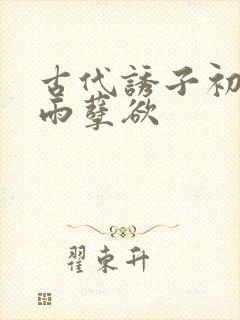 古代誘子初
雨孽欲
翟東升